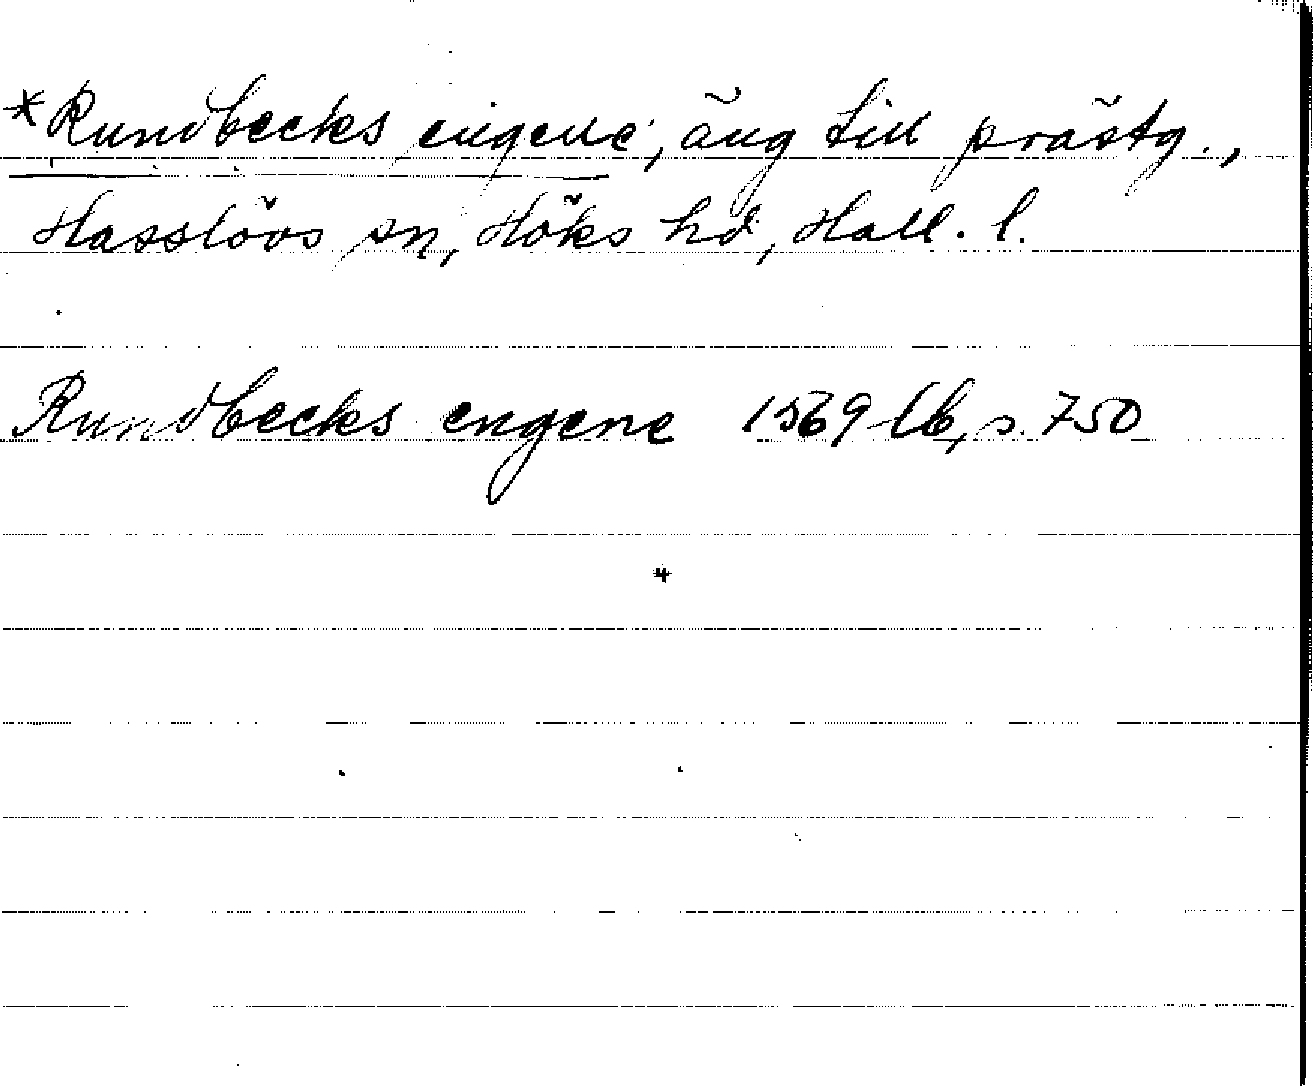 *Rundbecks engene, äng till prästg.,
Hasslövs sn, Höks hd, Hall. l.
Rundbecks engene 1569 lb, s. 750